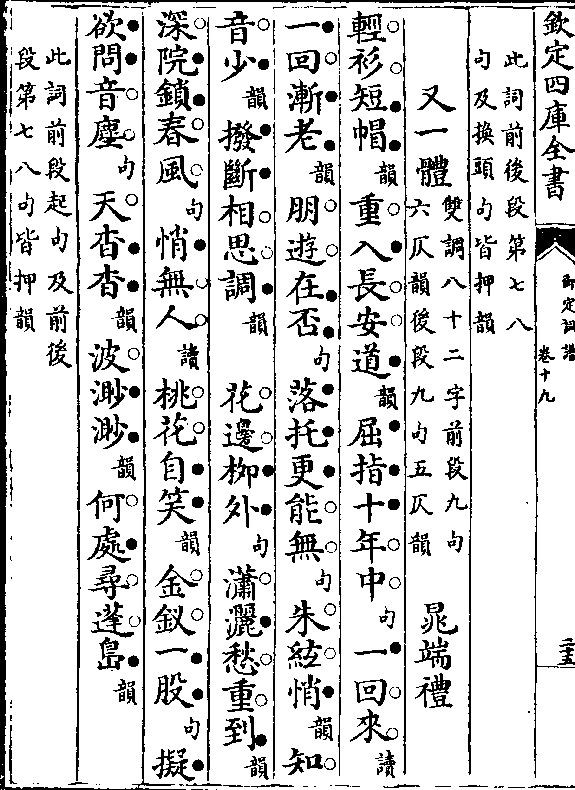 欽定四庫全書
御定詞譜
卷十九
二五
此詞前後段第七八
句及換頭句皆押韻
又一體
雙調八十二字前段九句
六仄韻後段九句五仄韻
晁端禮
輕衫短帽韻重入長安道韻屈指十年中句一回來讀
一回漸老韻朋遊在否句落托更能無句朱絃悄韻知
音少韻撥斷相思調韻 花邊柳外句瀟灑愁重到韻
深院鎖春風句悄無人讀桃花自笑韻金釵一股句擬
欲問音塵句天杳杳韻波渺渺韻何處尋蓬島韻
此詞前段起句及前後
段第七八句皆押韻